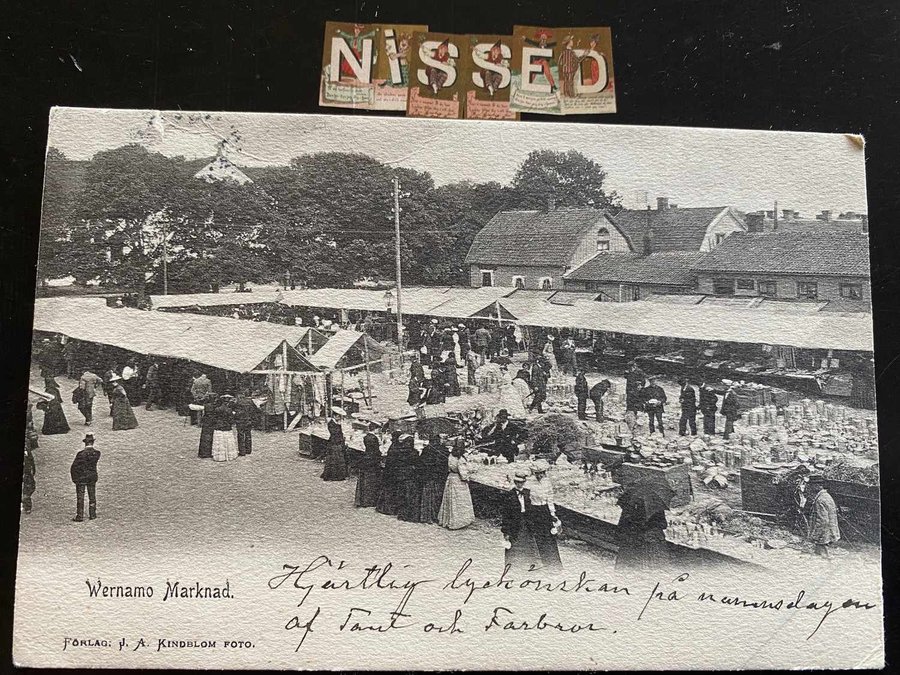 NiSSED
Wernamo Marknad.
Hjärtlig lyckönskan på namnsdagen
af Tant och Farbror.
Förlag: J. A. Kindblom foto.